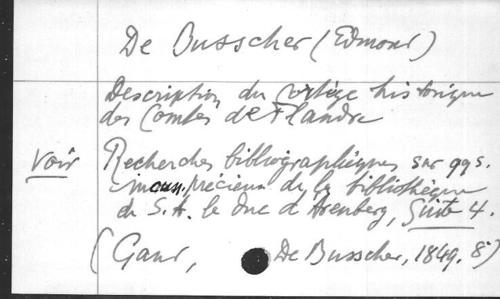 De Busscher (Edmond)
Description du cortège historique
des Comtes de Flandre
Voir Recherches bibliographiques sur qqs.
incun. précieux de la bibliothèque
de S. A. le duc d'Arenberg, Suite 4.
(Gand, De Busscher, 1849. 8°)